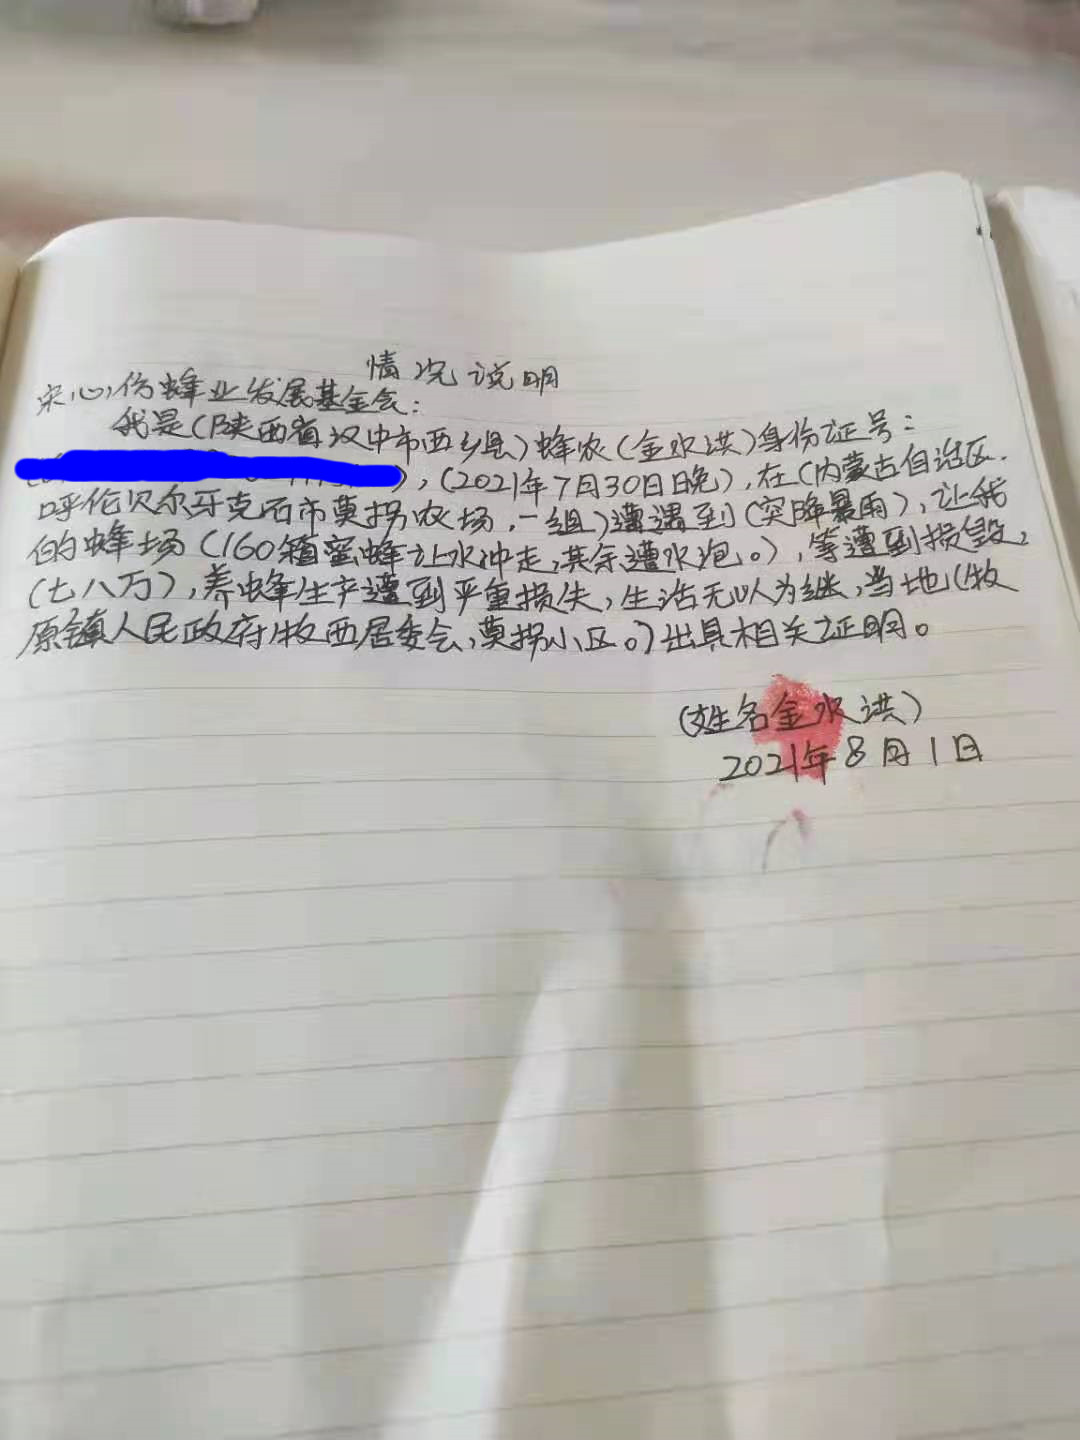 情况说明
宋心仿蜂业发展基金会：
我是（陕西省汉中市西乡县）蜂农（金水洪）身份证号：
），（2021年7月30日晚），在（内蒙古自治区.
呼伦贝尔牙克石市莫拐农场，一组）遭遇到（突降暴雨），让我
的蜂场（160箱蜜蜂让水冲走，其余遭水泡。），等遭到损毁，
（七八万），养蜂生产遭到严重损失，生活无以为继，当地（牧
原镇人民政府牧西居委会，莫拐小区。）出具相关证明。
（姓名金水洪）
2021年8月1日